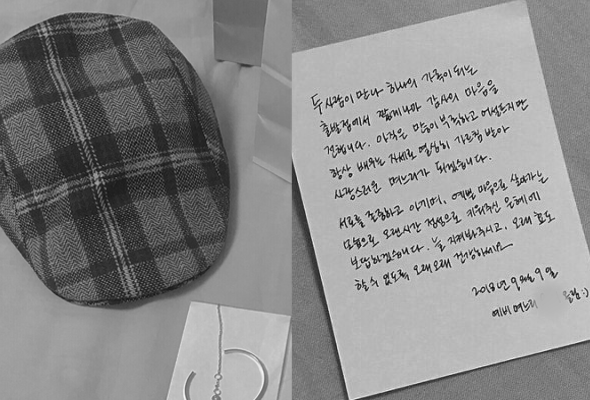 두 사람이 만나 하나의 가족이 되는
출발점에서 짧게나마 감사의 마음을
전합니다. 아직은 많이 부족하고 어설프지만
항상 배우는 자세로 열심히 가르침 받아
사랑스러운 며느리가 되겠습니다.
서로를 존중하고 아끼며, 예쁜 마음으로 살아가는
모습으로 오랜시간 정성으로 키워주신 은혜에
보답하겠습니다. 늘 지켜봐주시고, 오래 효도
할 수 있도록 오래오래 건강하세요
2018년 9월 9일
예비 며느리 올림 :)